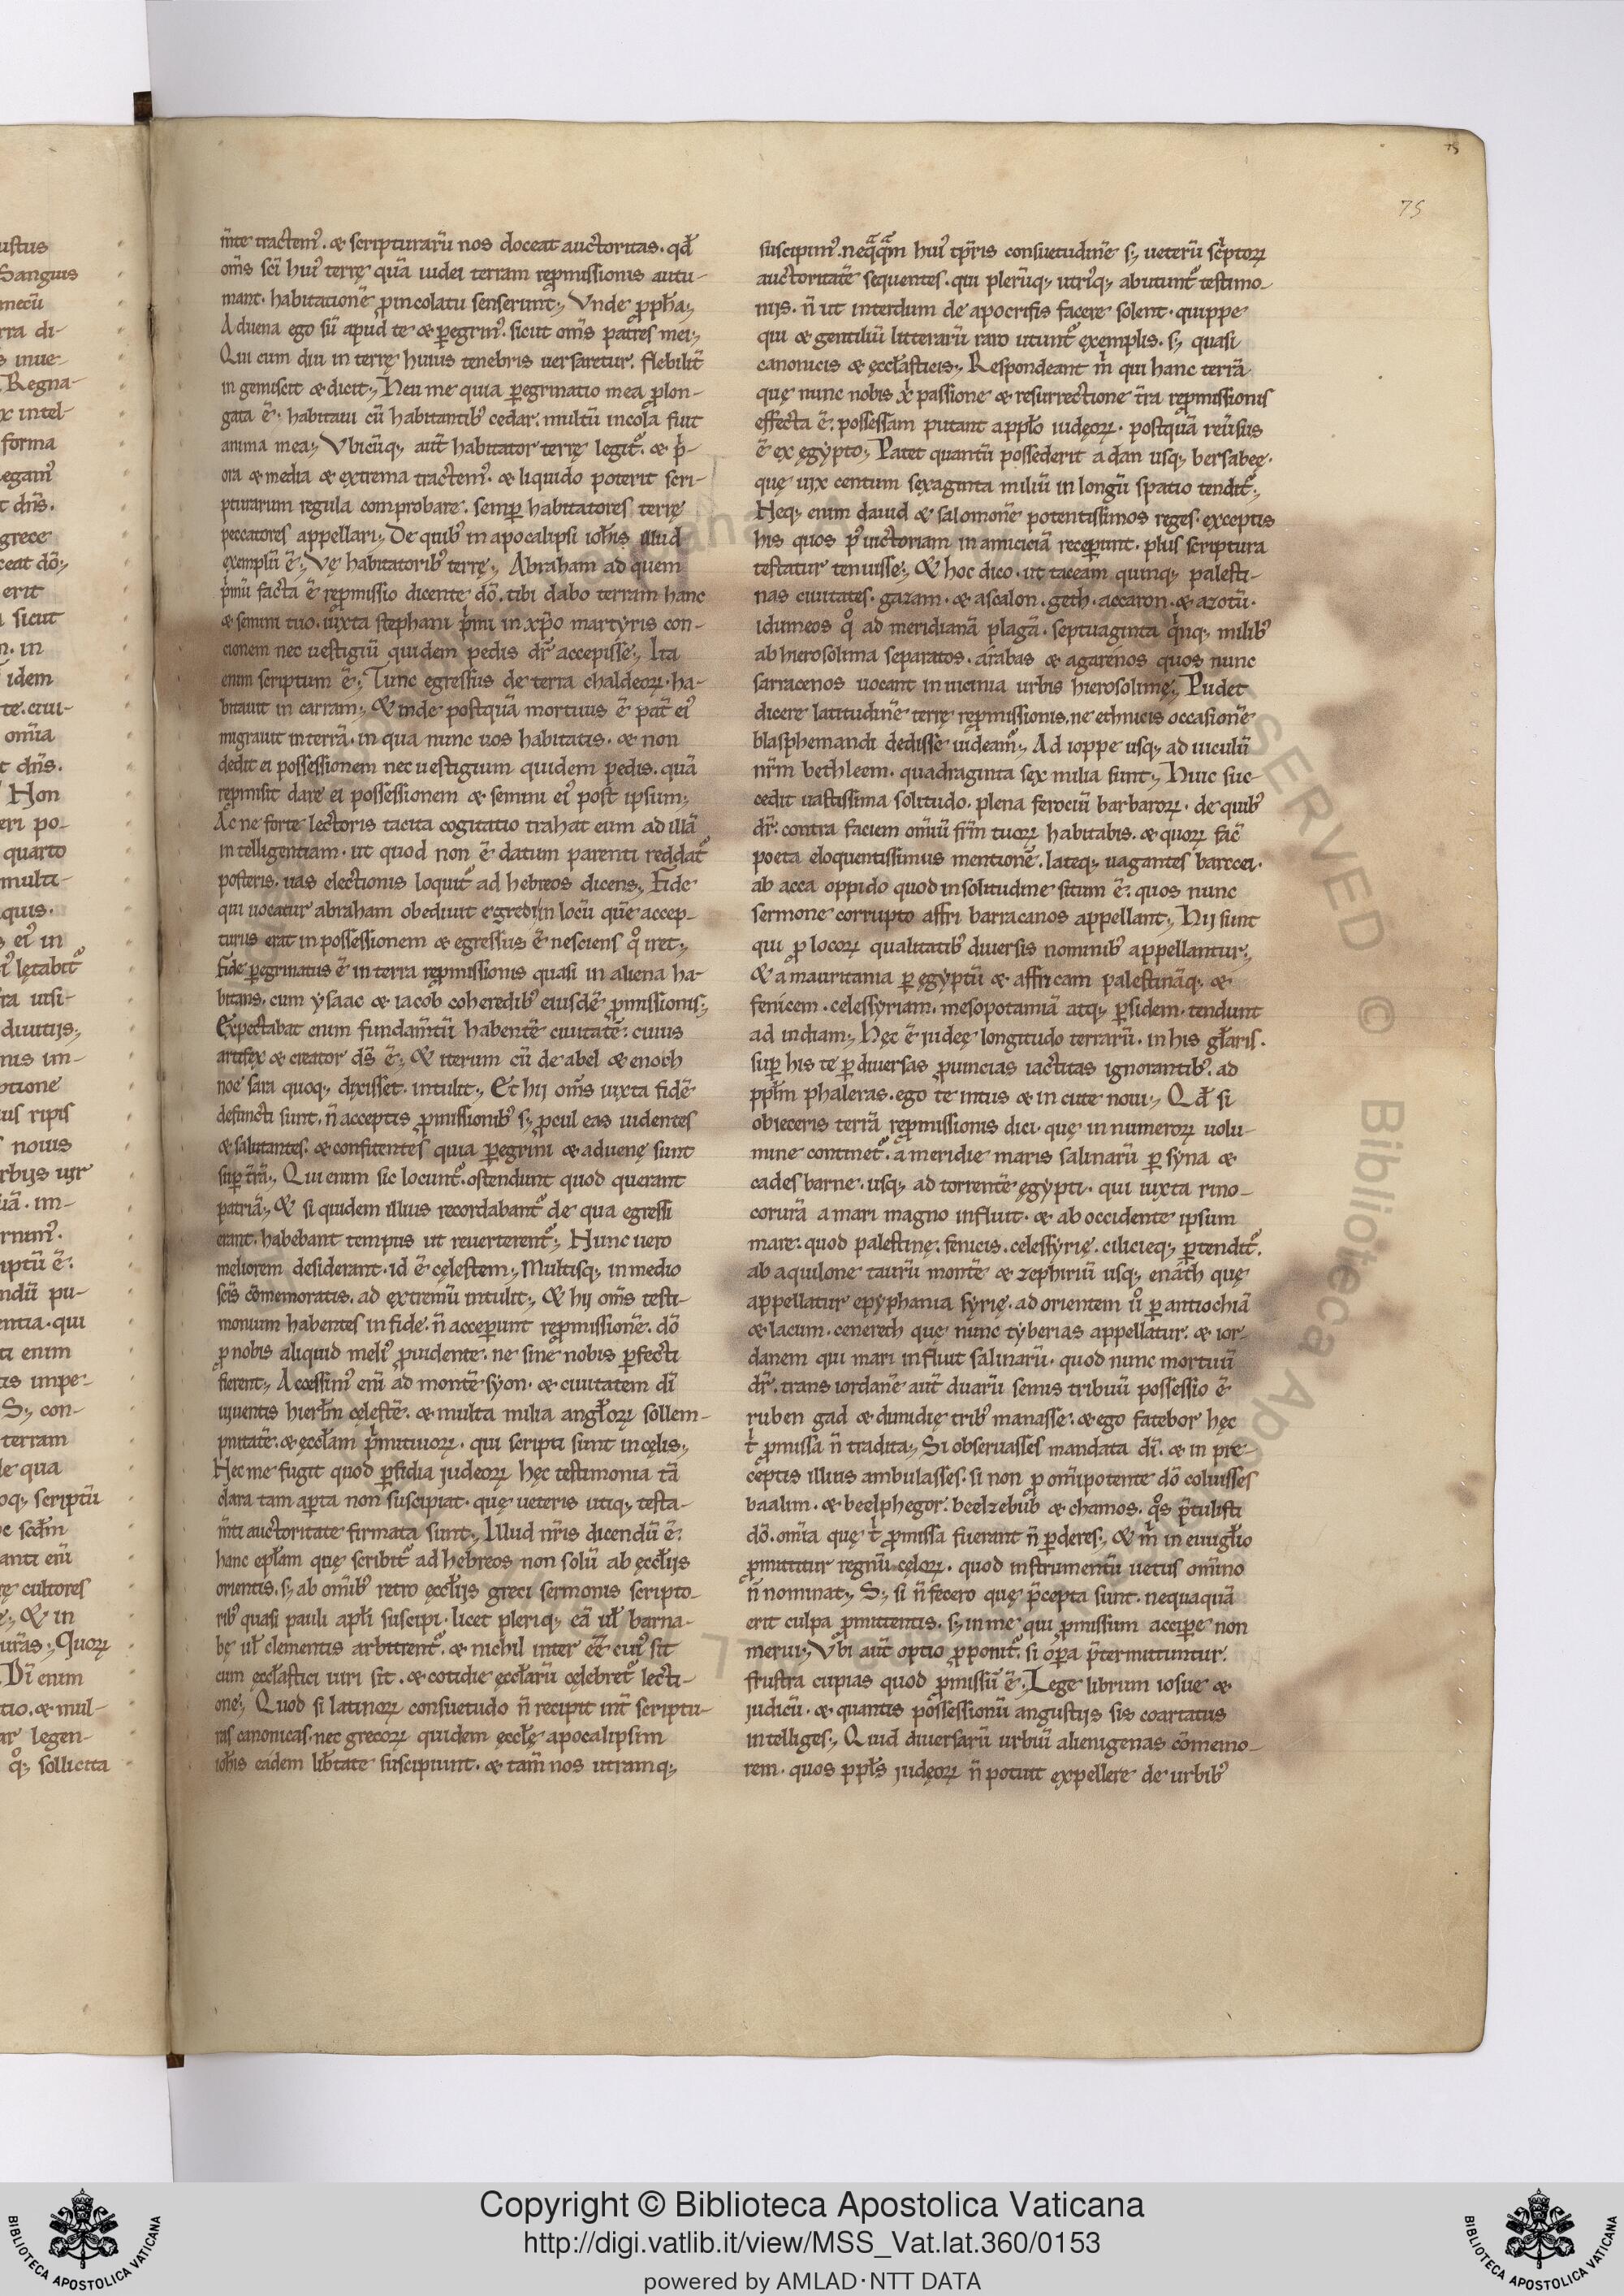 75
75
m̃te tractemꝰ. & scripturarũ nos doceat auctoritas. qđ
om̃s sc̃i huiꝰ terrę quã iudei terram rep̱missionis autu-
mant. habitationẽ ꝓincolatu senserunt; Vnde ꝓph̃a;
Aduena ego sũ apud te & ꝑegrinꝰ. sicut om̃s patres mei;
Qui cum diu in terrę huius tenebris uersaretur. flebilit̃
in gemiscit & dicit; Heu me quia ꝑegrinatio mea ꝓlon-
gata ẽ. habitaui cũ habitantibꝰ cedar. multũ incola fuit
anima mea; Vbicũq; aut̃ habitator terrę legit᷑. & p̾-
ora & media & extrema tractemꝰ. & liquido poterit scri-
pturarum regula comprobare. semꝑ habitatores terrę
peccatores appellari; De quibꝰ in apocalipsi ioh̃is illud
exemplũ ẽ; Vę habitatoribꝰ terrę; Abraham ad quem
p̾mũ facta ẽ reꝓmissio dicente dõ. tibi dabo terram hanc
& semini tuo. iuxta stephani p̾mi in xp̃o martyris con-
cionem nec uestigiũ quidem pedis dr̃ accepisse; Ita
enim scriptum ẽ; Tunc egressus de terra chaldeoꝝ. ha-
bitauit in carram; & inde postquã mortuus ẽ pat̃ eiꝰ
migrauit interrã. in qua nunc uos habitatis. & non
dedit ei possessionem nec uestigium quidem pedis. quã
reꝓmisit dare ei possessionem & semini eiꝰ post ipsum;
Ac ne forte lectoris tacita cogitatio trahat eum ad illã
intelligentiam. ut quod non ẽ datum parenti reddat᷑
posteris. uas electionis loquit᷑ ad hebreos dicens; Fide
qui uocatur abraham obediuit egredi in locũ quẽ accep-
turus erat in possessionem & egressus ẽ nesciens q̊ iret;
Fide ꝑegrinatus ẽ in terra reꝓmissionis quasi in aliena ha-
bitans. cum ysaac & iacob coheredibꝰ eiusdẽ ꝓmissionis;
Expectabat enim fundam̃tũ habentẽ ciuitatẽ. cuius
artifex & creator dš ẽ; & iterum cũ de abel & enoch
noe sara quoq; dixisset. intulit; Et hij om̃s iuxta fidẽ
defuncti sunt. ñ acceptis ꝓmissionibꝰ s; ꝓcul eas uidentes
& salutantes. & confitentes quia ꝑegrini & aduenę sunt
suꝑ t̃rã; Qui enim sic locunt᷑. ostendunt quod querant
patriã; & si quidem illius recordabant᷑ de qua egressi
erant. habebant tempus ut reuerterent᷑; Hunc uero
meliorem desiderant. id ẽ cęlestem; Multisq; in medio
sc̃is cõmemoratis. ad extremũ intulit; & hij om̃s testi-
monium habentes in fide. ñ acceꝑunt reꝓmissionẽ. dõ
ꝓ nobis aliquid meliꝰ ꝓuidente. ne sine nobis ꝑfecti
fierent; Accessimꝰ eni ad montẽ syon. & ciuitatem di
uiuentis hierłm cęlestẽ. & multa milia angłoꝝ sollem-
pnitatẽ. & ęccłam p̾mitiuoꝝ. qui scripti sunt in cęlis;
Hec me fugit quod ꝑfidia iudeoꝝ hęc testimonia tã
clara tam aꝑta non suscipiat. quę ueteris utiq; testa-
m̃ti auctoritate firmata sunt; Illud nr̃is dicendũ ẽ.
hanc epłam quę scribit᷑ ad hebreos non solũ ab ęccłijs
orientis. s; ab om̃ibꝰ retro ęccłijs greci sermonis scripto-
ribꝰ quasi pauli apłi suscipi. licet pleriq; eã uł barna-
bę uł clementis arbitrent᷑. & nichil inter eẽ cuiꝰ sit
cum ęccłastici uiri sit. & cotidie ęccłarũ cęlebret᷑ lecti-
one; Quod si latinoꝝ consuetudo ñ recipit int̃ scriptu-
ras canonicas. nec grecoꝝ quidem ęccłę apocalipsim
ioh̃is eadem lib̃tate suscipiunt. & tam̃ nos utramq;
suscipimꝰ. neqͣqͣm huiꝰ tp̃ris consuetudinẽ s; ueterũ sc̾ptoꝝ
auctoritatẽ sequentes. qui plerũq; utriꝰq; abutunt᷑ testimo-
nijs. ñ ut interdum de apocrifis facere solent. quippe
qui & gentiliũ litterarũ raro utunt᷑ exemplis. s; quasi
canonicis & ęccłasticis; Respondeant m̾ qui hanc terrã
quę nunc nobis x̾ passione & resurrectione t̃ra reꝓmissionis
effecta ẽ. possessam putant appło iudęoꝝ. postquã reũsus
ẽ ex ęgypto; Patet quantũ possederit a dan usq; bersabeę.
quę uix centum sexaginta miliũ in longũ spatio tendit᷑;
Neq; enim dauid & salomonẽ potentissimos reges. exceptis
his quos p̾ uictoriam in amiciciã receꝑunt. plus scriptura
testatur tenuisse; & hoc dico. ut taceam quinq; palesti-
nas ciuitates. gazam. & ascalon. geth. accaron. & azotũ.
idumeos q̊ ad meridianã plagã. septuaginta q̾nq; milibꝰ
ab hierosolima separatos. arabas & agarenos quos nunc
sarracenos uocant in uicinia urbis hierosolimę; Pudet
dicere latitudinẽ terrę reꝓmissionis. ne ethnicis occasionẽ
blasphemandi dedisse uideam᷑; Ad ioppe usq; ad uiculũ
nr̃m bethleem. quadraginta sex milia sunt; Huic suc-
cedit uastissima solitudo. plena ferociũ barbaroꝝ. de quibꝰ
dr̃. contra faciem om̃iũ fr̃m tuoꝝ habitabis. & quoꝝ fac̃
poeta eloquentissimus mentionẽ. lateq; uagantes barcei.
ab acca oppido quod in solitudine situm ẽ. quos nunc
sermone corrupto affri barracanos appellant; Hij sunt
qui ꝓ locoꝝ qualitatibꝰ diuersis nominibꝰ appellantur;
& a mauritania ꝑ ęgyptũ & affricam palestinãq; &
fenicem. celessyriam. mesopotamiã atq; ꝑsidem. tendunt
ad indiam; Hęc ẽ iudeę longitudo terrarũ. in his głaris.
suꝑ his te ꝑ diuersas ꝓuincias iactitas ignorantibꝰ. ad
ppłm phaleras. ego te intus & in cute noui; Qđ si
obieceris terrã reꝓmissionis dici. quę in numeroꝝ uolu-
mine continet᷑. a meridie maris salinarũ ꝑ syna &
cades barne. usq; ad torrentẽ ęgypti. qui iuxta rino-
corurã a mari magno influit. & ab occidente ipsum
mare. quod palestinę. fenicis. celessyrię. cilicięq; ꝑtendit᷑.
ab aquilone taurũ montẽ & zephiriũ usq; emath quę
appellatur epyphania syrię. ad orientem ů ꝑ antiochiã
& lacum. cenereth quę nunc tyberias appellatur. & ior-
danem qui mari influit salinarũ. quod nunc mortuũ
dr̃. trans iordanẽ aut̃ duarũ semis tribuũ possessio ẽ
ruben gad & dimidię tribꝰ manasse. & ego fatebor hęc
t̾ ꝓmissa ñ tradita; Si obseruasses mandata di. & in pre-
ceptis illius ambulasses. si non ꝓ om̃ipotente dõ coluisses
baalim. & beelphegor. beelzebub & chamos. q̊s p̃tulisti
dõ. om̃ia quę t̾ ꝓmissa fuerant ñ ꝑderes; & m̾ in euuigłio
ꝓmittitur regnũ cęloꝝ. quod instrumentũ uetus om̃ino
ñ nominat; S; si ñ fecero quę p̃cepta sunt. nequaquã
erit culpa ꝓmittentis. s; in me qui ꝓmissum acciꝑe non
merui; Vbi aut̃ optio ꝓponit᷑. si oꝑa p̃termittuntur.
frustra cupias quod ꝓmissũ ẽ. Lege librum iosue &
iudicũ. & quantis possessionũ angustijs sis coartatus
intelliges; Quid diuersarũ urbiũ alienigenas cõmemo-
rem. quos ppłs iudęoꝝ ñ potuit expellere de urbibꝰ
Copyright © Biblioteca Apostolica Vaticana
http://digi.vatlib.it/view/MSS_Vat.lat.360/0153
powered by AMLAD·NTT DATA
BIBLIOTECA APOSTOLICA VATICANA
BIBLIOTECA APOSTOLICA VATICANA